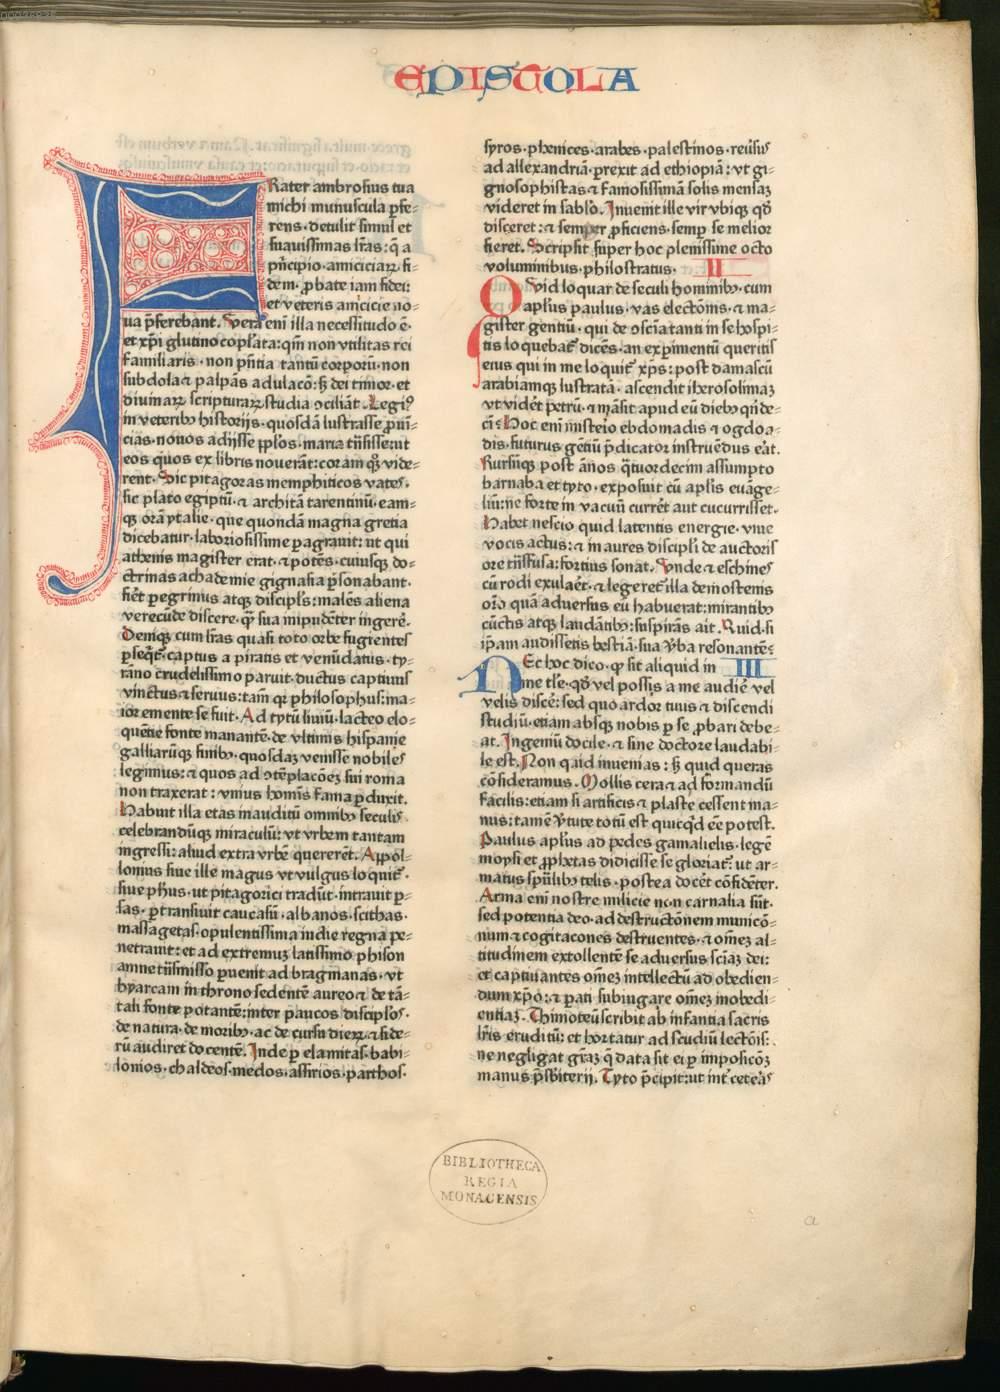 EPISTOLA
FRater ambrosius tua
michi munuscula ꝑfe⸗
rens· detulit simul et
suauissimas lr̃as: q̃ a
pn̄cipio· amiciciaꝝ· fi⸗
dem· ꝓbate iam fidei:
et veteris amicicie no⸗
ua p̃ferebant. Vera eni̅ illa necessitudo ē·
et xp̃i glutino copl̄ata: qm̄ non vtilitas rei
familiaris· non pn̄tia tantū corporū· non
subdola ⁊ palpās adulacō: sꝫ dei timor· et
diuinaꝝ scripturaꝝ studia ↄciliāt. Legiꝰ
in veteribꝫ historijs· quosdā lustrasse ꝓuī⸗
cias· nouos adijsse pp̄los· maria tn̄sissent
eos quos ex libris nouerāt: coram qꝫ vide⸗
rent. Sic pitagoras memphiticos vates·
sic plato egiptū· ⁊ architā tarentinū· eam⸗
qꝫ orā ytalie· que quondā magna gretia
dicebatur· laboriosissime ꝑagrauit: ut qui
athenis magister erat· ⁊ potēs· cuiusqꝫ do⸗
ctrinas achademie gignasia ꝑsonabant·
fiēt ꝑegrinus atqꝫ discipl̄s: malēs aliena
verecūde discere· qꝫ sua impudēter ingerē.
Deniqꝫ cum lr̄as quasi toto orbe fugientes
ꝑseqr̄t· captus a piratis et venūdatus· ty⸗
rāno crudelissimo paruit· ductus captiuus
vinctus ⁊ seruus: tamē qꝫ philosophus: ma⸗
ior emente se fuit. Ad tytū liuiū· lacteo elo⸗
quētie fonte manantē· de vltimis hispanie
galliarūqꝫ finibꝫ· quosdaꝫ venisse nobiles
legimus: ⁊ quos ad ↄtēplacōeꝫ sui roma
non traxerat: vnius homīs fama ꝑduxit.
Habuit illa etas inauditū omnibꝫ seculis
celebrandūqꝫ miraculū: vt vrbem tantam
ingressi: aliud extra vrbē quererēt. Appol⸗
lonius siue ille magus vt vulgus loquit̃·
siue ph̄us· ut pitagorici tradūt· intrauit ꝑ⸗
sas· ꝑtransiuit caucasū· albanos· scithas·
massagetas· opulentissima indie regna pe⸗
netrauit: et ad extremuꝫ latissimo phison
amne tn̄smisso ꝑuenit ad bragmanas· vt
hyarcam in throno sedentē aureo ⁊ de tā⸗
tali fonte potantē: inter paucos discipl̄os·
de natura· de moribꝫ· ac de cursu dieꝝ ⁊ side⸗
rū audiret docentē. Inde ꝑ elamitas· babi⸗
lonios· chaldeos· medos· assirios· parthos·
syros· phenices· arabes· palestinos· reūsus
ad allexandriā· ꝑrexit ad ethiopiā: vt gi⸗
gnosophistas ⁊ famosissimā solis mensaꝫ
videret in sablo. Inuenit ille vir vbiqꝫ qd̄
disceret: ⁊ semper ꝓficiens· semꝑ se melior
fieret. Scripsit super hoc plenissime octo
voluminibus· philostratus. II
QVid loquar de seculi hominibꝫ· cum
apl̄us paulus· vas electōnis· ⁊ ma⸗
gister gentiū· qui de ↄsc̄ia tanti in se hospi⸗
tis loquebat̃ dicēs· an exꝑimentū queritis
eius qui in me loquit̃ xp̄s: post damascū
arabiamqꝫ lustratā· ascendit iherosolimaꝫ
vt vidēt petrū· ⁊ māsit apud eū diebꝫ qn̄de⸗
ci̅: Hoc eni̅ misteio ebdomadis ⁊ ogdoa⸗
dis· futurus gētiū p̄dicator instruēdus erat̃.
Rursūqꝫ post ānos q̃tuordecim assumpto
barnaba et tyto· exposuit cū apl̄is euāge⸗
liū: ne forte in vacuū currēt aut cucurrisset·
Habet nescio quid latentis energie· viue
vocis actus: ⁊ in aures discipl̄i de auctoris
ore tn̄sfusa: fortius sonat. Vnde ⁊ eschines
cū rodi exulaēt· ⁊ legeret̃ illa demostenis
or̄o quā aduersus eū habuerat: mirantibꝫ
cūctis atqꝫ laudātibꝫ: suspirās ait. Quid si
ip̄am audissetis bestiā· sua v̄ba resonantē:
NEc hoc dico· qꝫ sit aliquid in III
me tl̄e· qd̄ vel possis a me audiē vel
velis discē: sed quo ardor tuus ⁊ discendi
studiū· etiam absqꝫ nobis ꝑ se ꝓbari debe⸗
at. Ingeniū docile· ⁊ sine doctore laudabi⸗
le est. Non q̄d inuenias: sꝫ quid queras
cōsideramus. Mollis cera ⁊ ad formandū
facilis: etiam si artificis ⁊ plaste cessent ma⸗
nus: tamē v̄tute totū est quicqd̄ eē potest.
Paulus apl̄us ad pedes gamalielis· legē
moysi et ꝓphetas didicisse se gloriat̃: ut ar⸗
matus spūlibꝫ telis· postea docēt cōfidēter.
Arma eni̅ nostre milicie non carnalia sūt·
sed potentia deo· ad destructōnem municō⸗
num ⁊ cogitacones destruentes· ⁊ omēꝫ al⸗
titudinem extollentē se aduersus scīaꝫ dei:
et captiuantes omēꝫ intellectū ad obedien⸗
dum xp̄o: ⁊ ꝑati subiugare omēꝫ inobedi⸗
entiaꝫ. Thimoteū scribit ab infantia sacris
lr̄is eruditū: et hortatur ad studiū lectōis:
ne negligat gr̄aꝫ q̄ data sit ei ꝑ imposicōꝫ
manus p̄sbiterij. Tyto p̄cipit: ut int̃ ceteras
BIBLIOTHECA
REGIA
MONACENSIS.
a